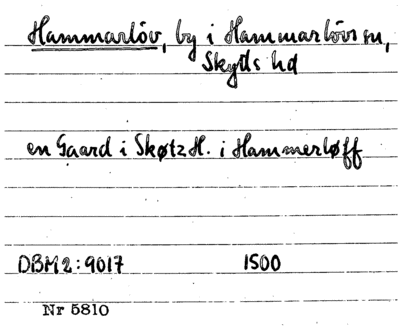 Hammarlöv, by i Hammarlövs sn,
Skytts hd
en Gaard i Skøtz H. i Hammerløff
DBM2:9017 1500
Nr 5810